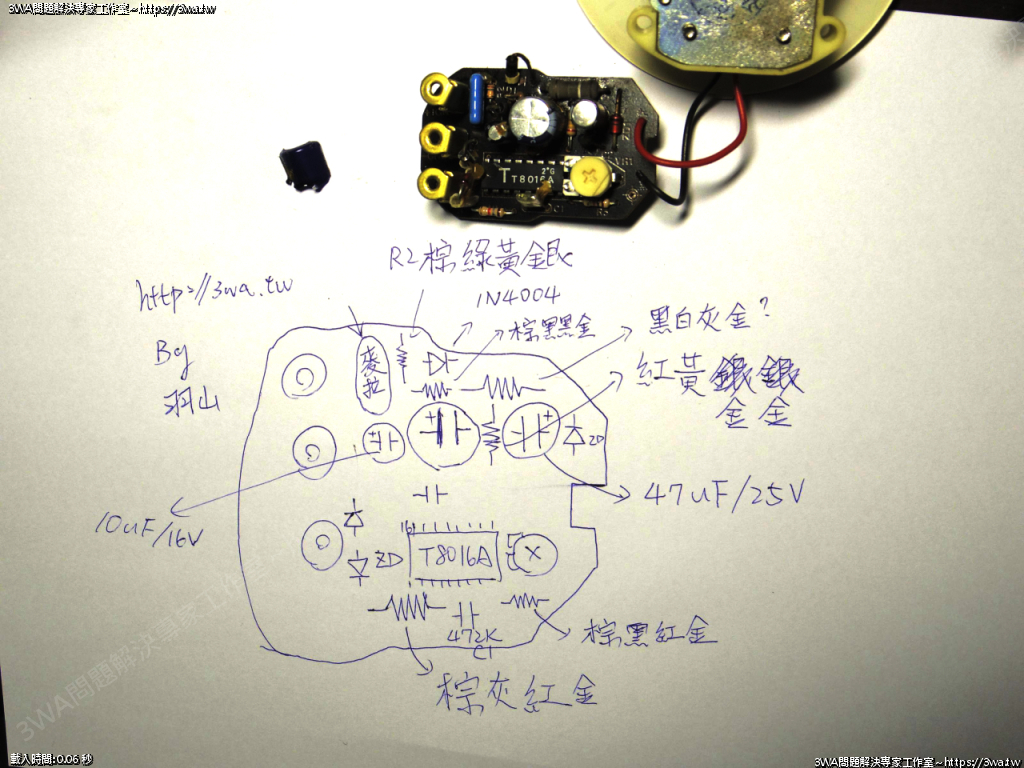 3WA問題解決專家工作室~https://3wa.tw
T
2*G
T8016A
R2棕綠黃銀
http://3wa.tw
1N4004
By
羽山
棕黑黑金
黑白灰金?
麥拉
紅黃銀銀
金金
+
+
+
ZD
10uF/16V
47uF/25V
ZD
T8016A
472K
C1
棕黑紅金
棕灰紅金
3WA問題解決專家工作室
載入時間:0.06 秒
3WA問題解決專家工作室~https://3wa.tw